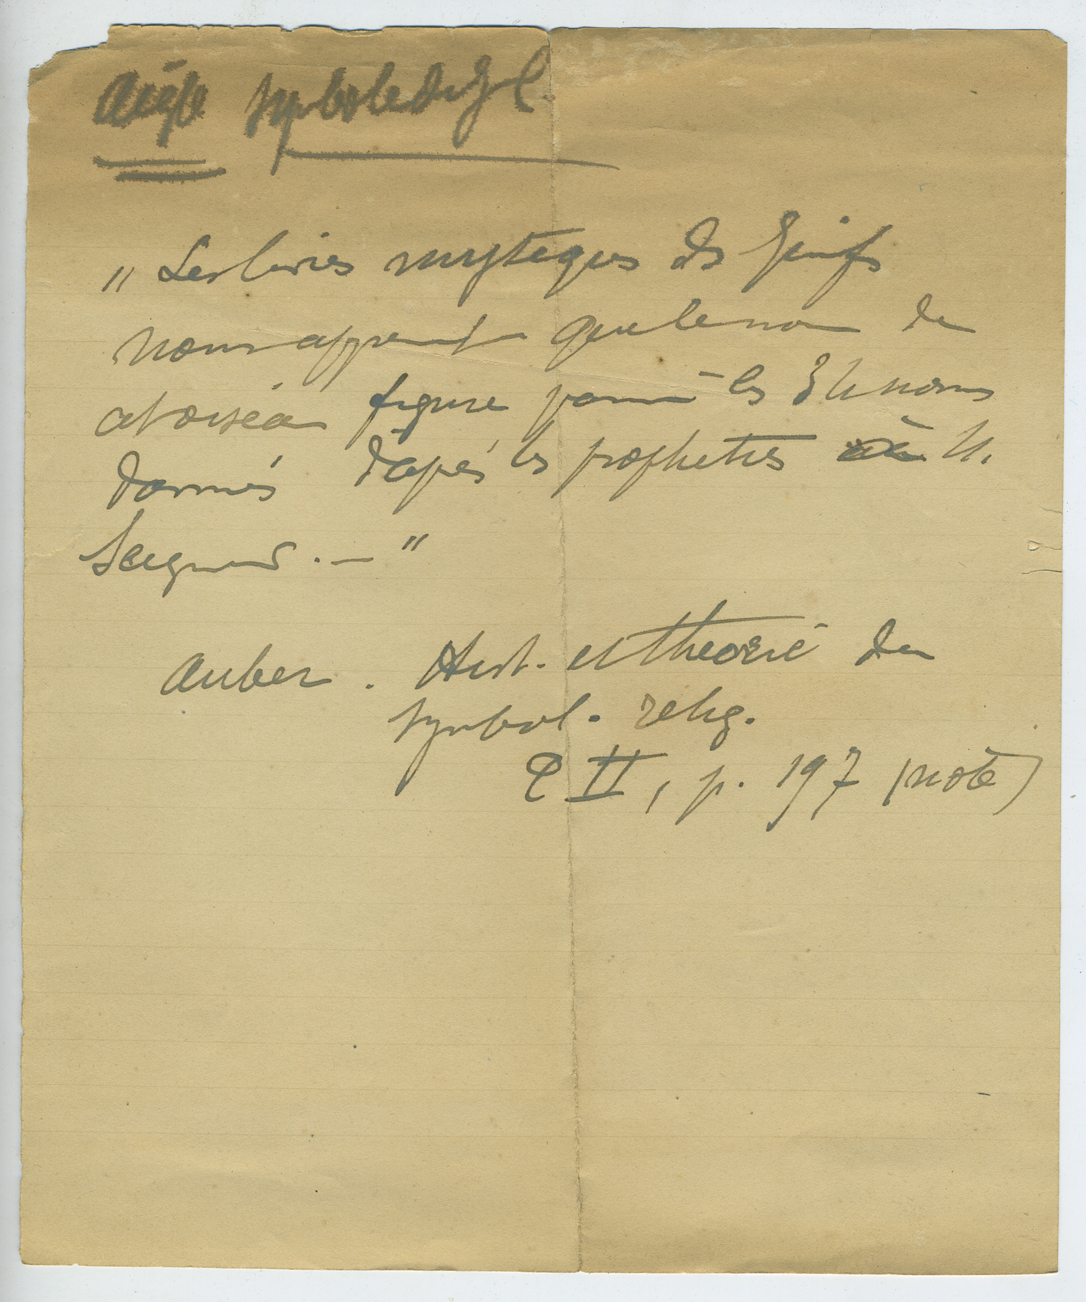 Aigle symbole de J. C.
" Les livres mystiques des Juifs
nous apprennent que le nom de
cet oiseau figure parmi les 34 noms
donnés d'après les prophetes à N.
Seigneur. — "
Auber. Hist. et theorie du
symbol. relig.
T II, p. 197 (note)